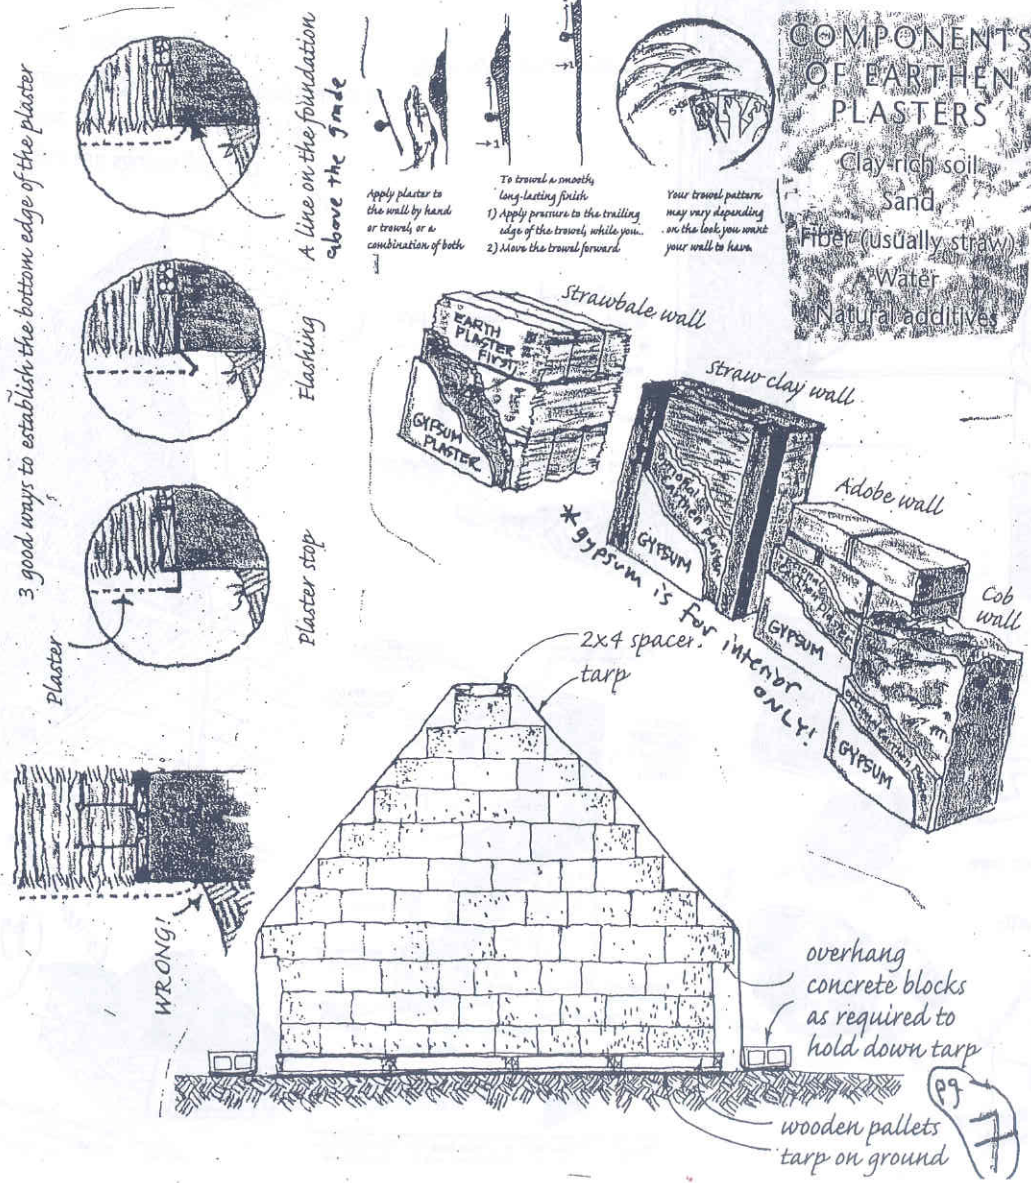 3 good ways to establish the bottom edge of the plaster
A line on the foundation
above the grade
Flashing
Plaster stop
Plaster
WRONG!
Apply plaster to
the wall by hand
or trowel, or a
combination of both
To trowel a smooth,
long-lasting finish
1) Apply pressure to the trailing
edge of the trowel, while you...
2) Move the trowel forward
Your trowel pattern
may vary depending
on the look you want
your wall to have
COMPONENTS
OF EARTHEN
PLASTERS
Clay-rich soil
Sand
Fiber (usually straw)
Water
Natural additives
Strawbale wall
EARTH
PLASTER
FIRST!
GYPSUM
PLASTER
Straw clay wall
optional
Earthen Plaster
GYPSUM
Adobe wall
optional
Earthen Plaster
GYPSUM
Cob
wall
optional earthen
GYPSUM
* gypsum is for interior
ONLY!
2x4 spacer
tarp
overhang
concrete blocks
as required to
hold down tarp
wooden pallets
tarp on ground
pg
7